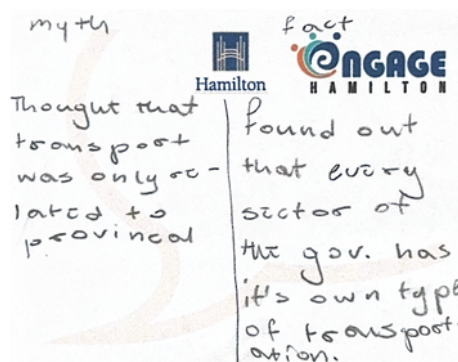 myth
fact
Hamilton
ENGAGE
HAMILTON
Thought that
transport
was only re-
lated to
provincal
found out
that every
sector of
the gov. has
it's own type
of transport-
ation.